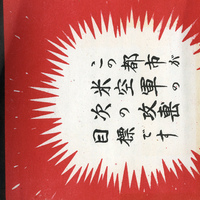 この都市が
米空軍の
次の攻撃の
目標です